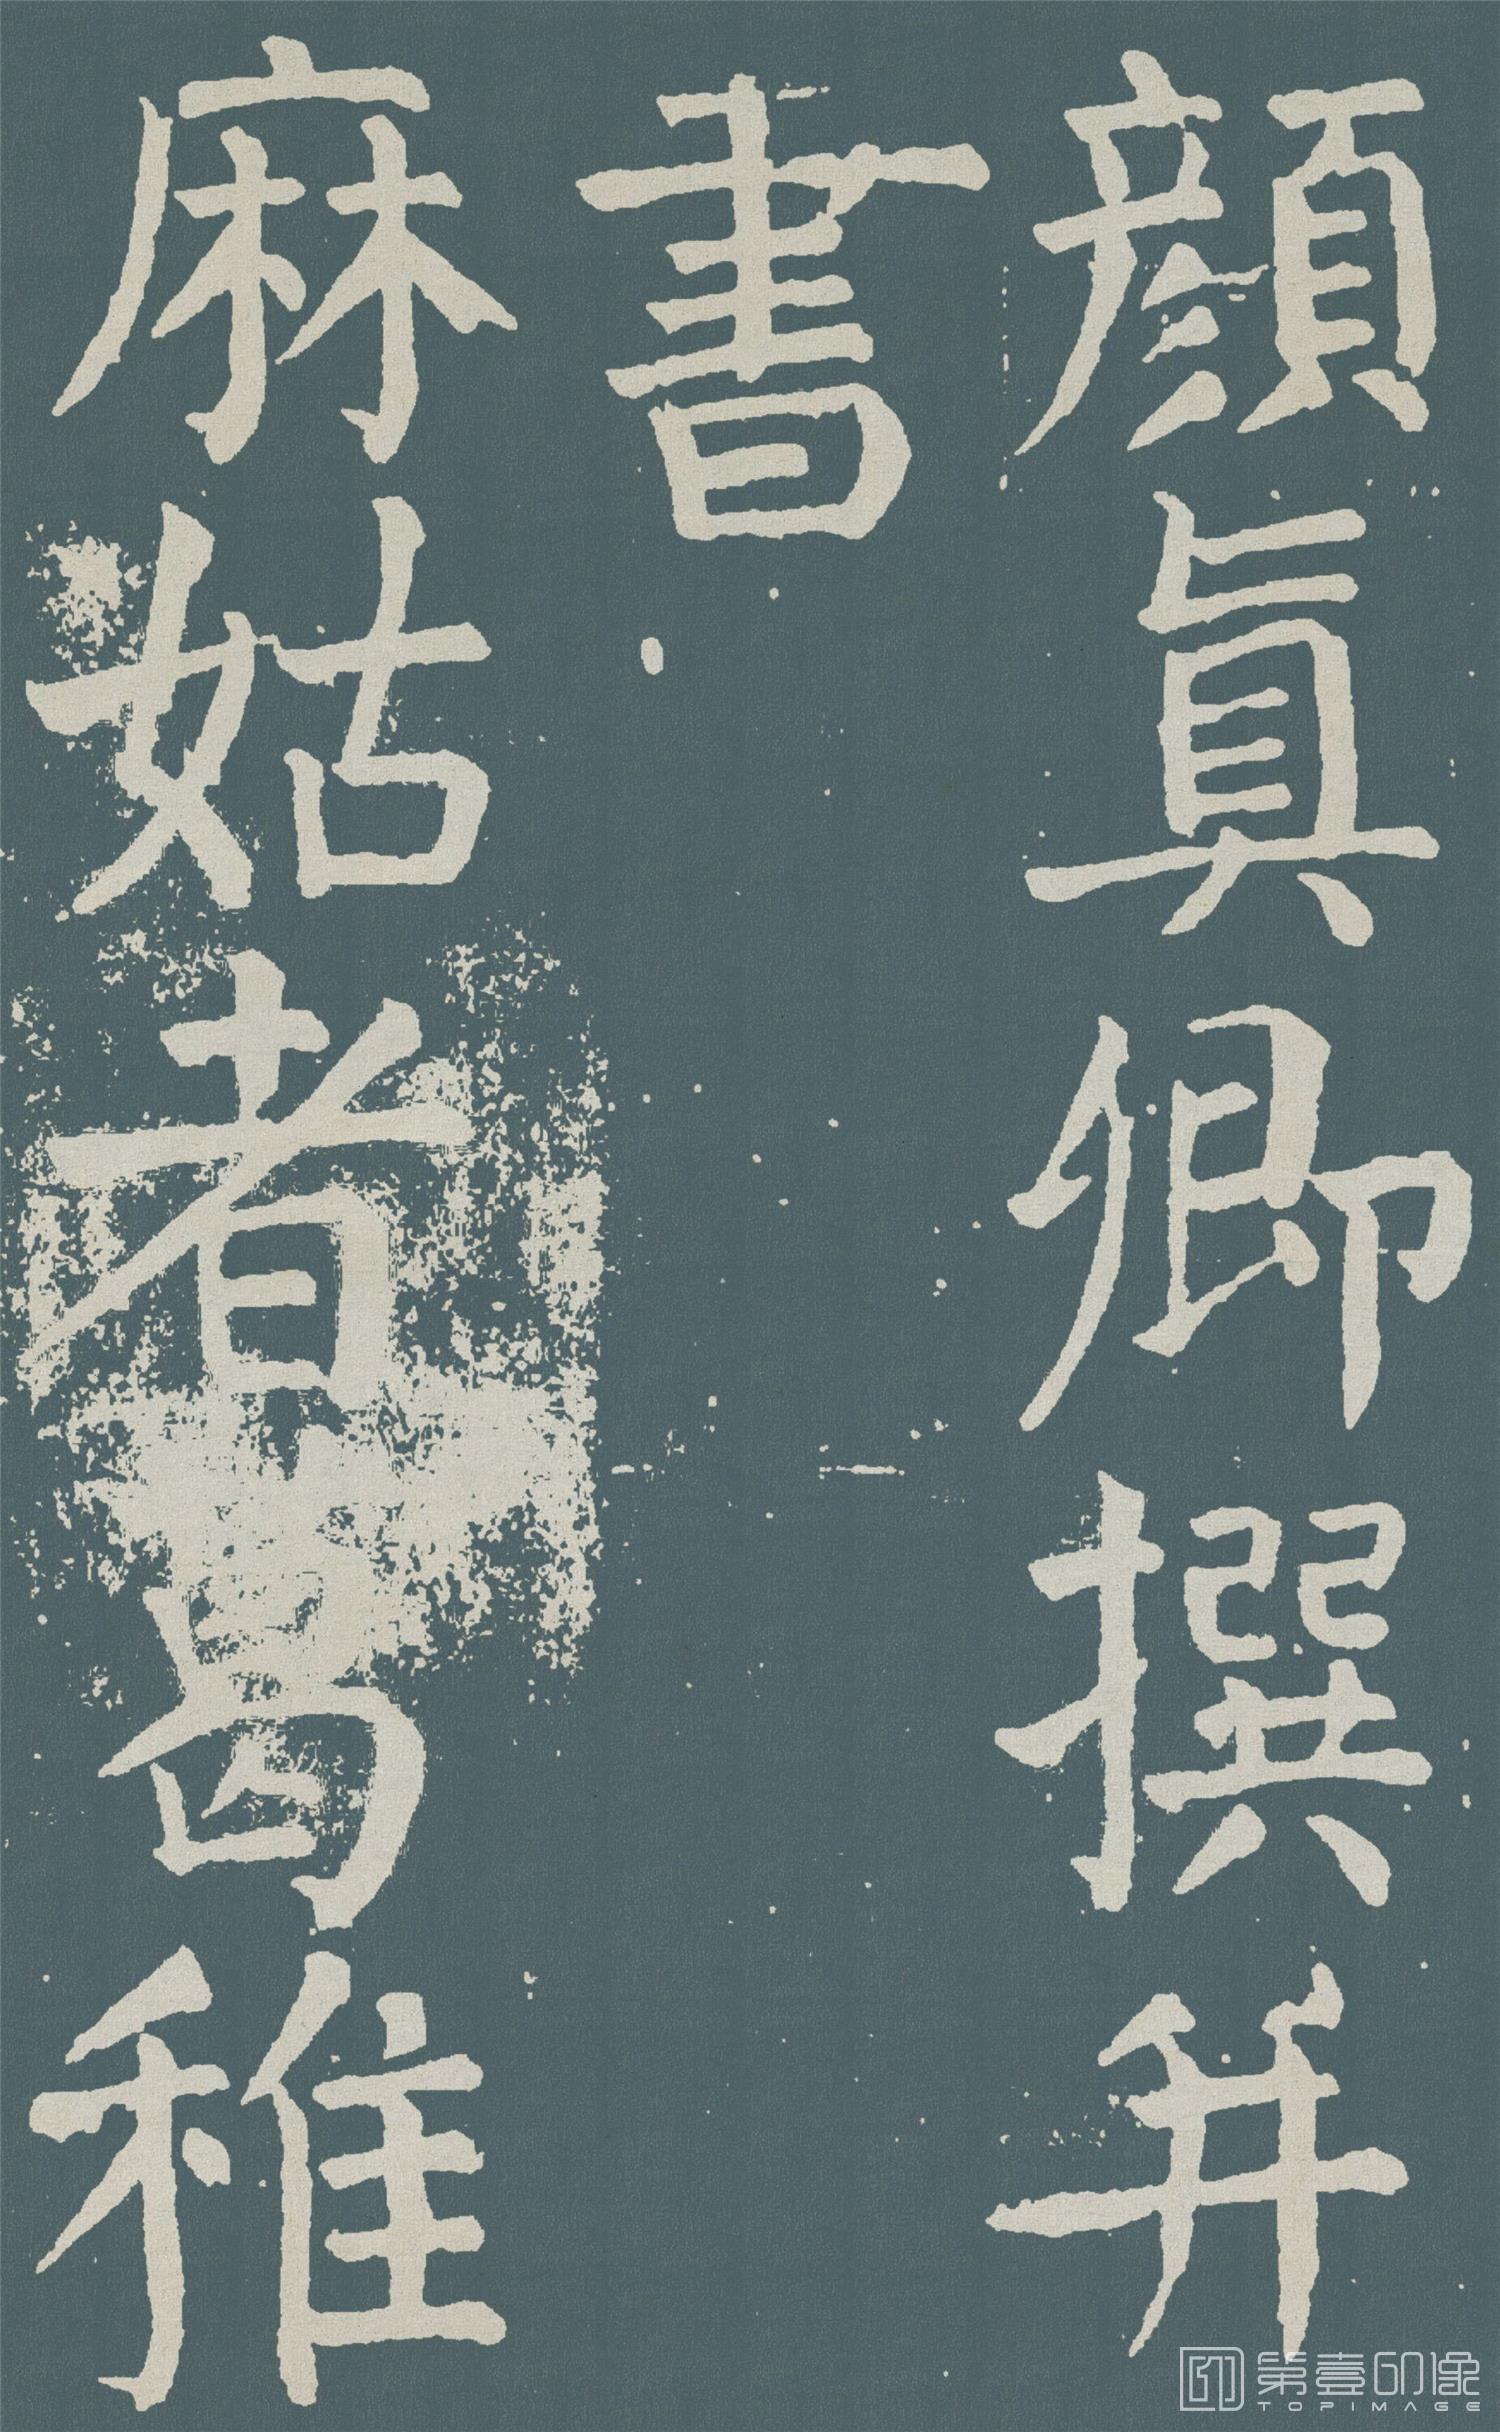 顏眞卿撰并
書
麻姑者葛稚
第壹印像
TOPIMAGE